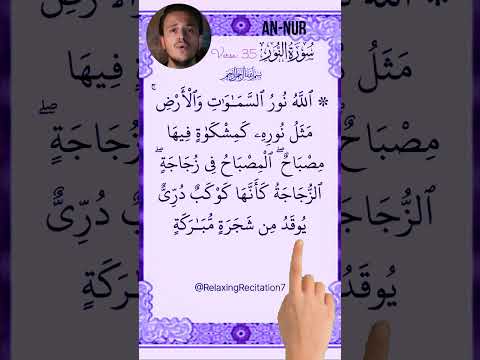 AN-NUR
Verse 35
سُورَةُ النُّورِ
۞ ٱللَّهُ نُورُ ٱلسَّمَـٰوَٰتِ وَٱلْأَرْضِ ۚ
مَثَلُ نُورِهِۦ كَمِشْكَوٰةٍ فِيهَا
مِصْبَاحٌ ۖ ٱلْمِصْبَاحُ فِى زُجَاجَةٍ ۖ
ٱلزُّجَاجَةُ كَأَنَّهَا كَوْكَبٌ دُرِّىٌّ
يُوقَدُ مِن شَجَرَةٍ مُّبَـٰرَكَةٍ
@RelaxingRecitation7